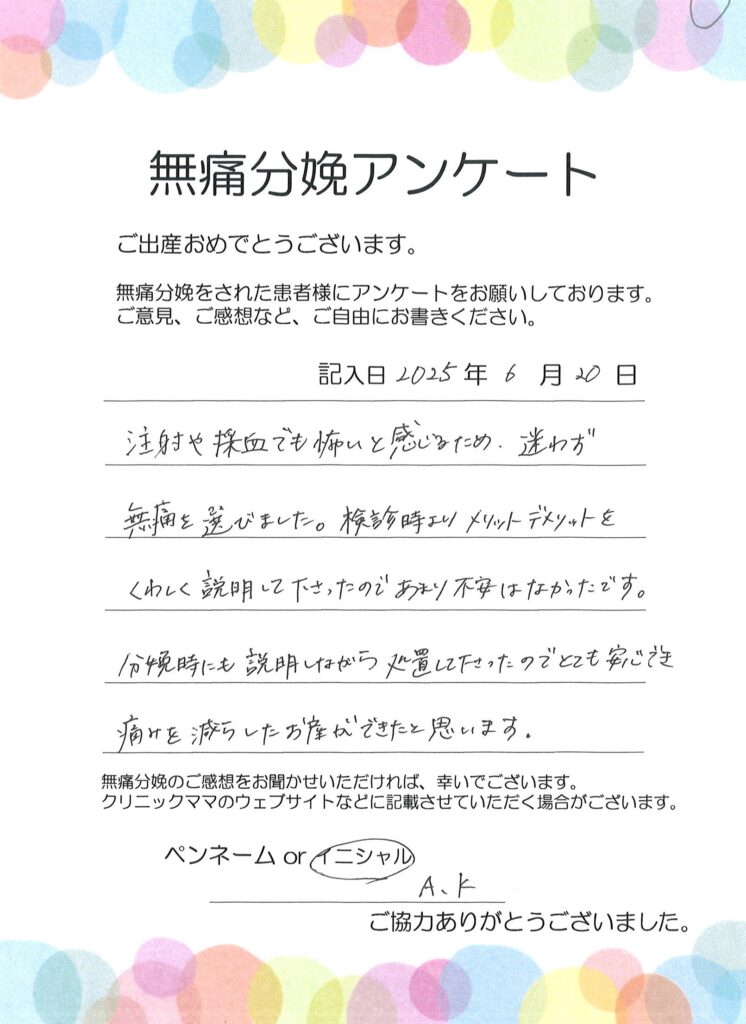 無痛分娩アンケート
ご出産おめでとうございます。
無痛分娩をされた患者様にアンケートをお願いしております。
ご意見、ご感想など、ご自由にお書きください。
記入日 2025 年 6 月 20 日
注射や採血でも怖いと感じるため、迷わず
無痛を選びました。検診時より メリットデメリットを
くわしく説明して下さったのであまり不安はなかったです。
分娩時にも説明しながら処置して下さったのでとても安心でき
痛みを減らしたお産ができたと思います。
無痛分娩のご感想をお聞かせいただければ、幸いでございます。
クリニックママのウェブサイトなどに記載させていただく場合がございます。
ペンネーム or イニシャル
A、K
ご協力ありがとうございました。